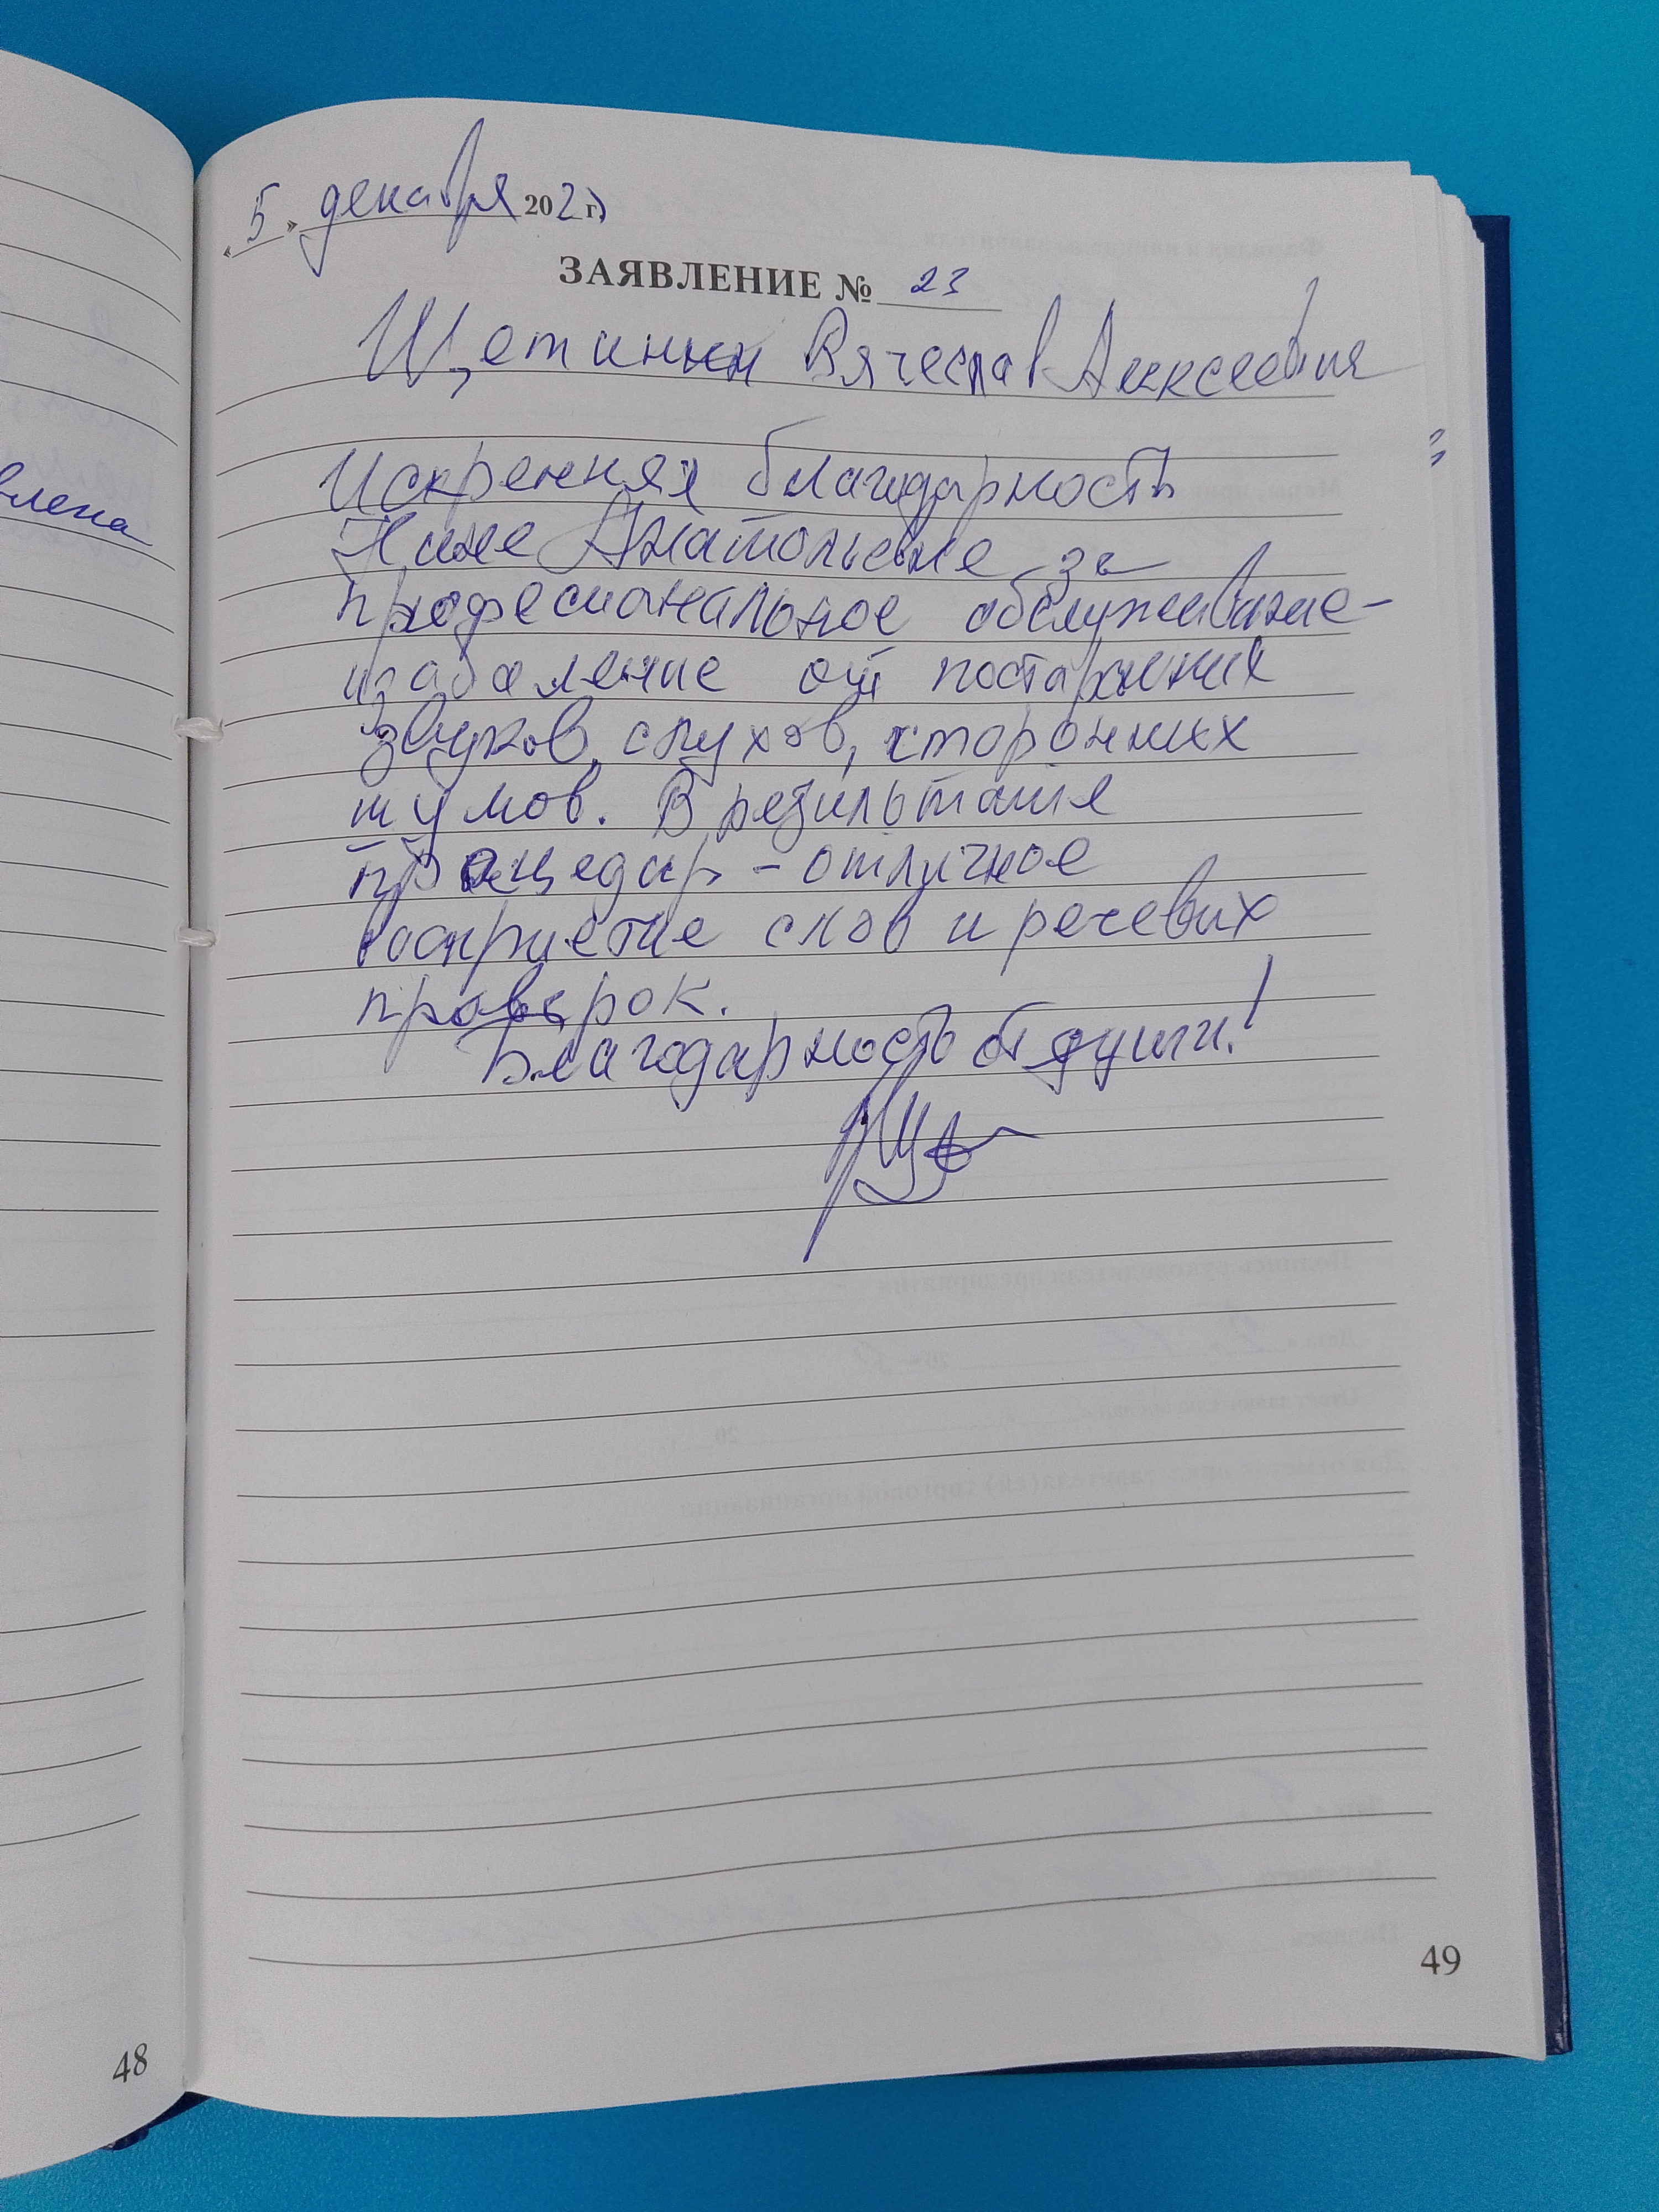 влена
48
«5» декабря 202 г.
ЗАЯВЛЕНИЕ № 23
Щетинин Вячеслав Алексеевич
Искренняя благодарность
Нине Анатольевне за
професиональное обслуживание-
избавление от постаронних
звуков, слухов, сторонних
шумов. В результате
процедур - отличное
восприетие слов и речевых
проверок.
Благодарность от души!
49